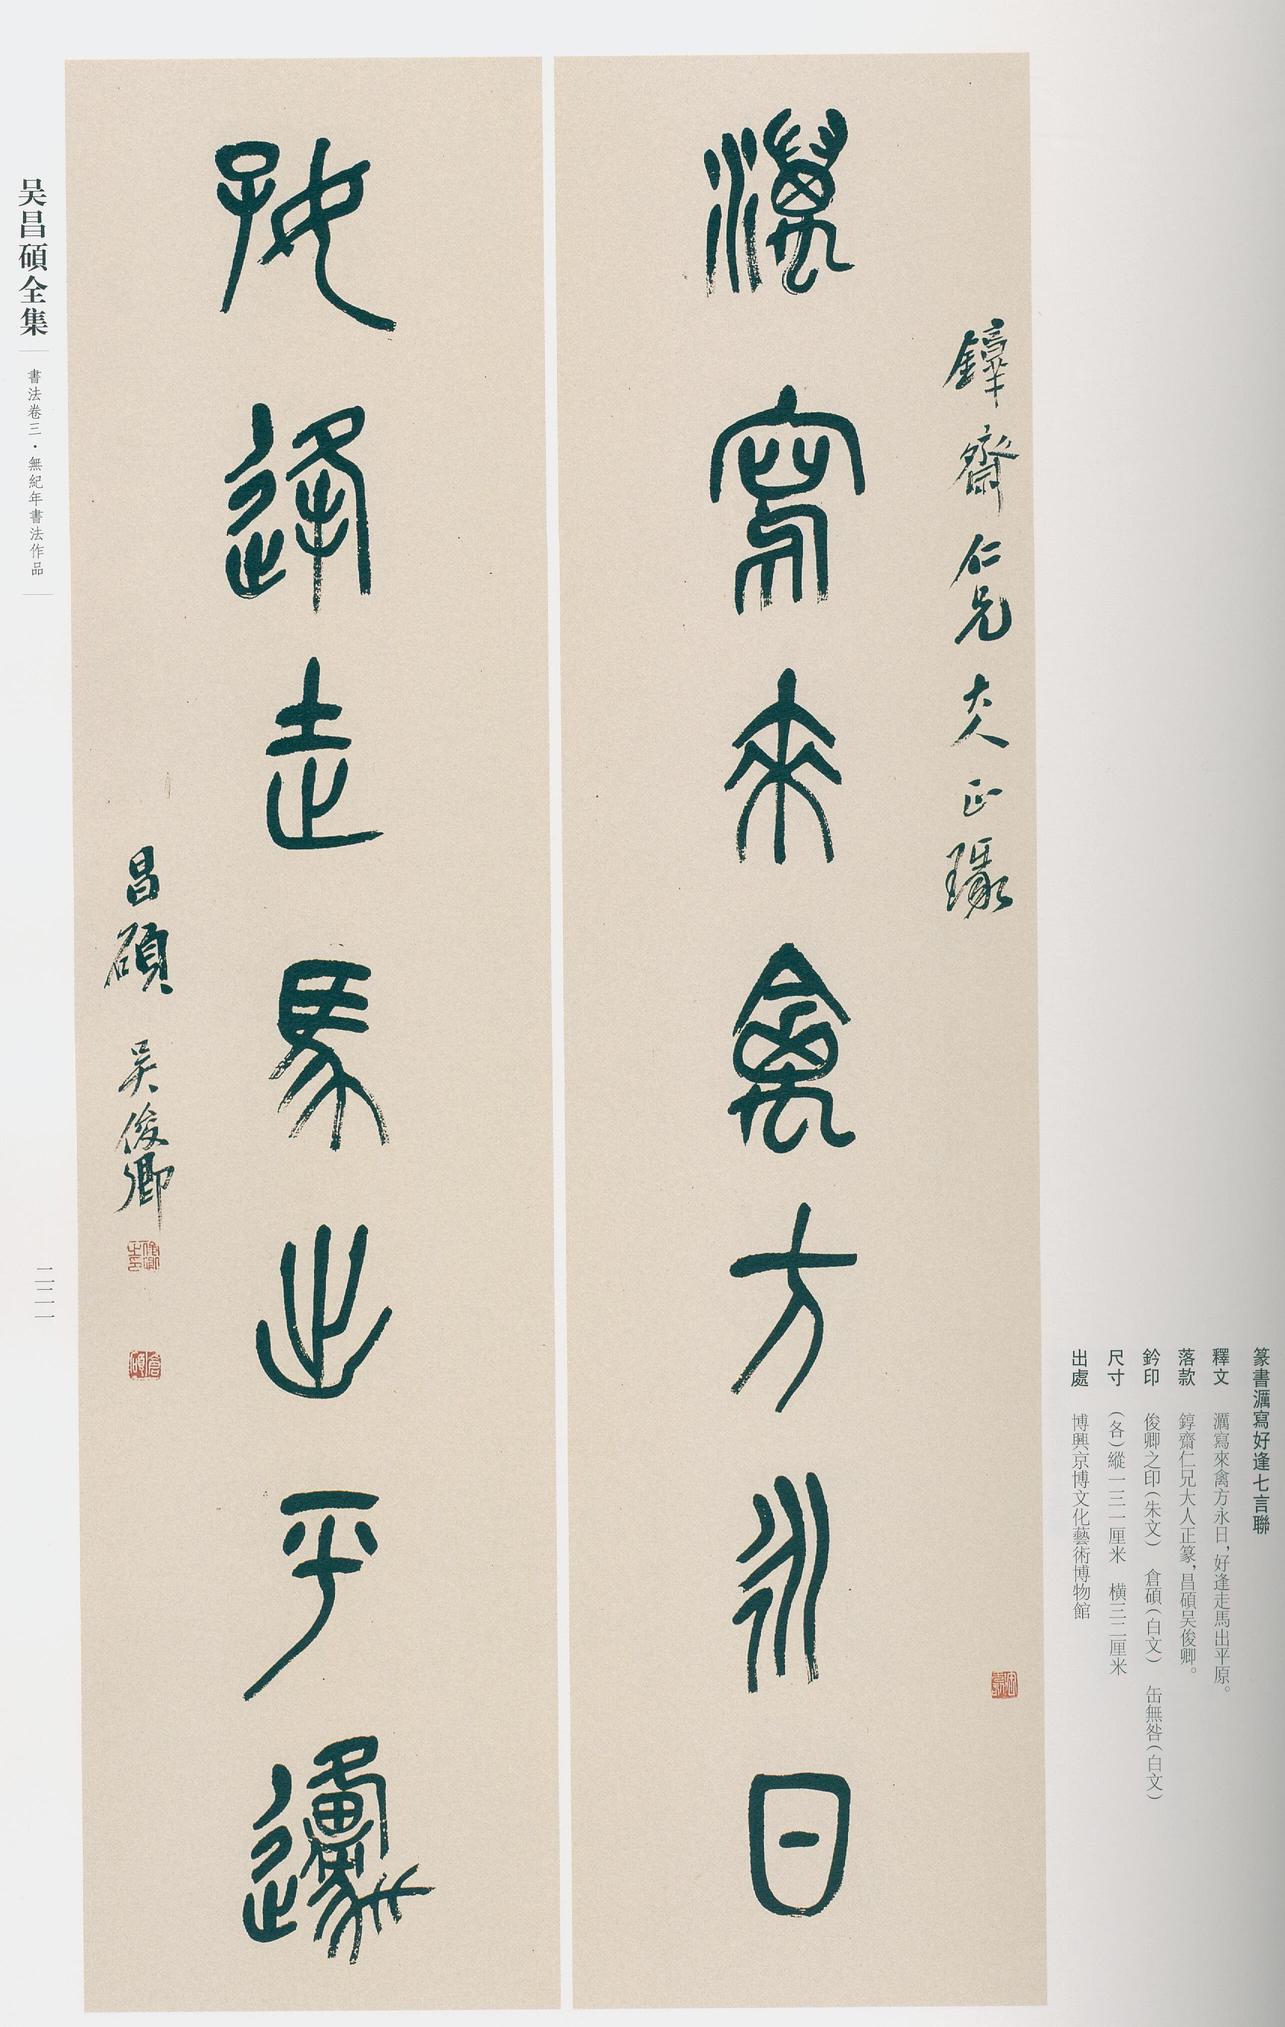 濿寫來禽方永日
錞齋仁兄大人正篆
好逢走馬出平邍
昌碩吴俊卿
篆書濿寫好逢七言聯
釋文 濿寫來禽方永日，好逢走馬出平原。
落款 錞齋仁兄大人正篆，昌碩吴俊卿。
鈐印 俊卿之印（朱文） 倉碩（白文） 缶無咎（白文）
尺寸 （各）縱一三一厘米 横三二厘米
出處 博興京博文化藝術博物館
吴昌碩全集
書法卷三·無紀年書法作品
二二一
俊卿之印
倉碩